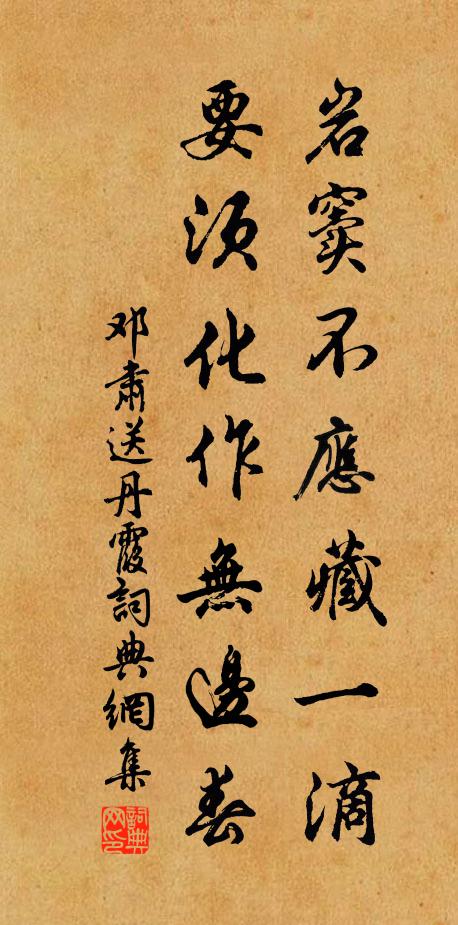 岩竇不應藏一滴
要須化作無邊春
邓肅送丹霞詞典網集
詞典网印